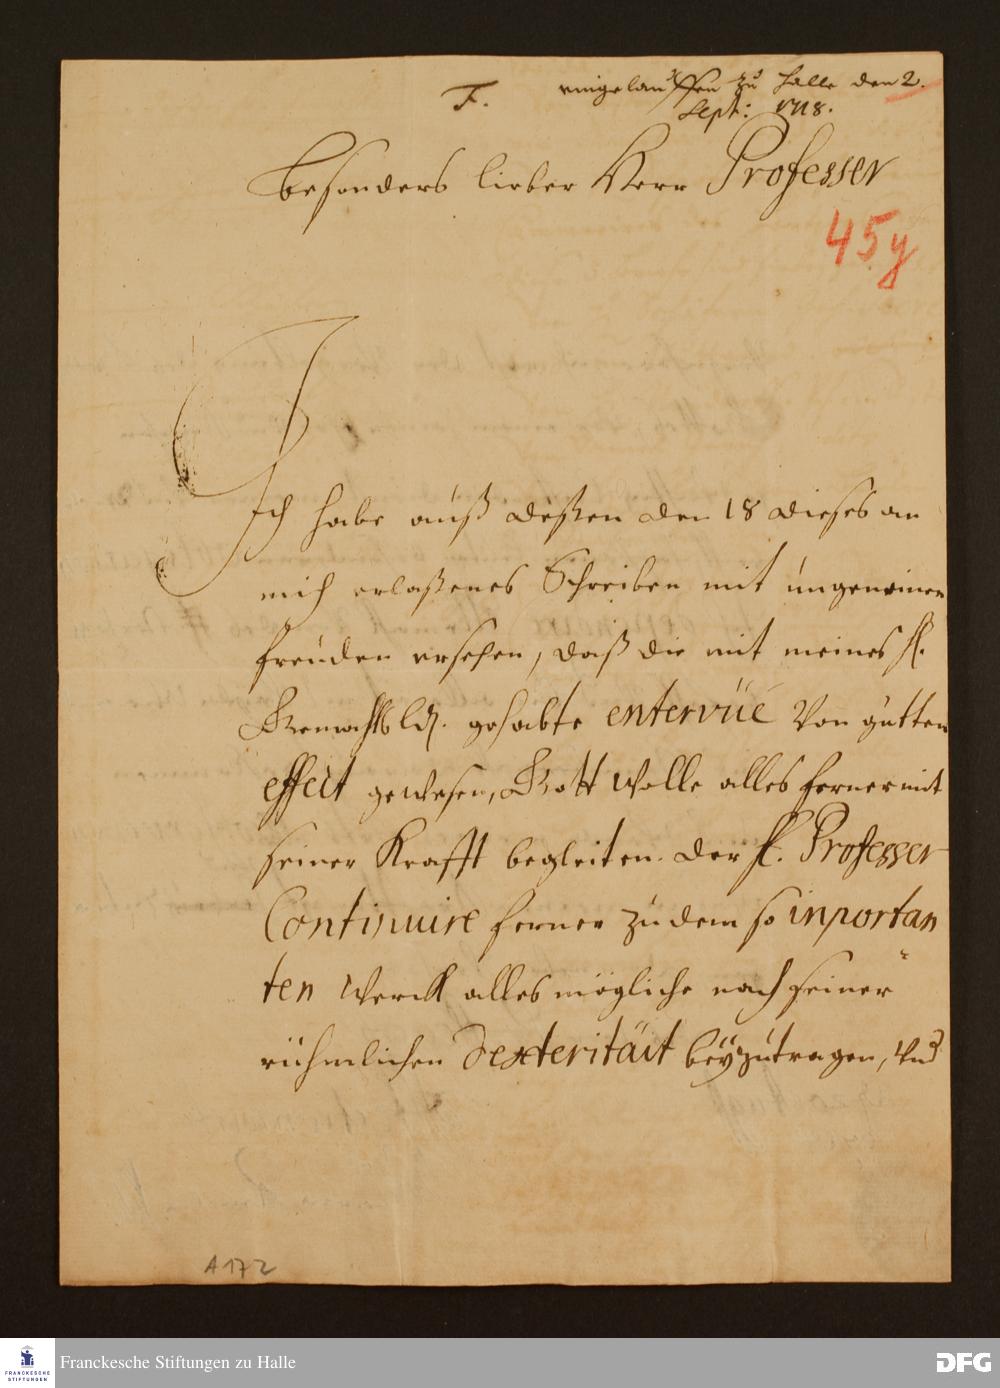 F.
eingelauffen zu Halle den 2.
Sept: 1718.
Besonders lieber Herr Professer
45y
Ich habe auß deßen den 18 dieses an
mich erlaßenes Schreiben mit ungemeinen
freuden ersehen, daß die mit meines H.
Gemahls Ld. gehabte entervüe von gutten
effect gewesen, Gott wolle alles ferner mit
seiner Krafft begleiten. der H. Professer
Continuire ferner zu dem so inportan
ten Werck alles mögliche nach seiner
rühmlichen dexteritäit beÿzutragen, und
A 172
FRANCKESCHE
STIFTUNGEN
Franckesche Stiftungen zu Halle
DFG